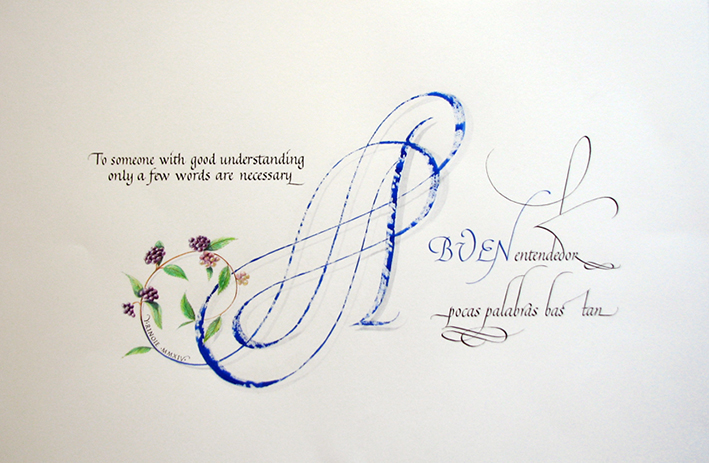 To someone with good understanding
only a few words are necessary
A
BUEN entendedor
pocas palabras bas tan
MMXIV